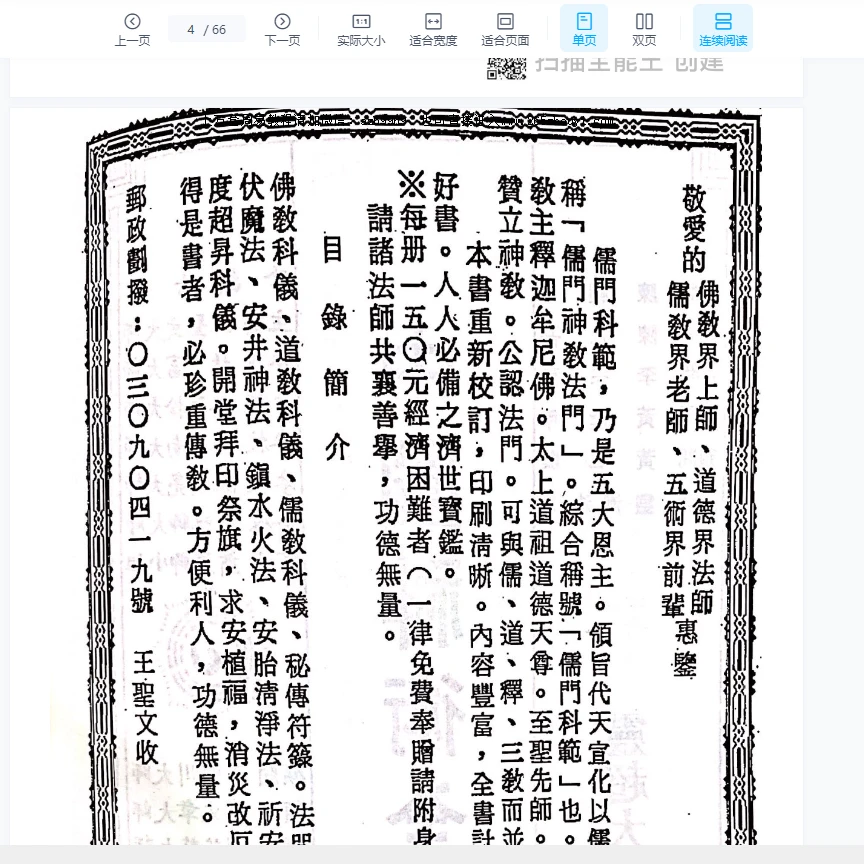 上一页
4 / 66
下一页
1:1
实际大小
适合宽度
适合页面
单页
双页
连续阅读
扫描全能王 创建
敬愛的
佛教界上師、道德界法師
儒教界老師、五術界前輩
惠鑒
儒門科範，乃是五大恩主。領旨代天宣化以儒
稱「儒門神教法門」。綜合稱號「儒門科範」也。
教主釋迦牟尼佛。太上道祖道德天尊。至聖先師。
贊立神教。公認法門。可與儒、道、釋、三教而並
本書重新校訂，印刷清晰。內容豐富，全書計
好書。人人必備之濟世寶鑑。
※每册一五〇元經濟困難者（一律免費奉贈請附身
請諸法師共襄善舉，功德無量。
目錄簡介
佛教科儀、道教科儀、儒教科儀、秘傳符籙。法門
伏魔法、安井神法、鎮水火法、安胎清淨法、祈安
度超昇科儀。開堂拜印祭旗，求安植福，消災改厄
得是書者，必珍重傳教。方便利人，功德無量。
郵政劃撥：〇三〇九〇四一九號　王聖文收